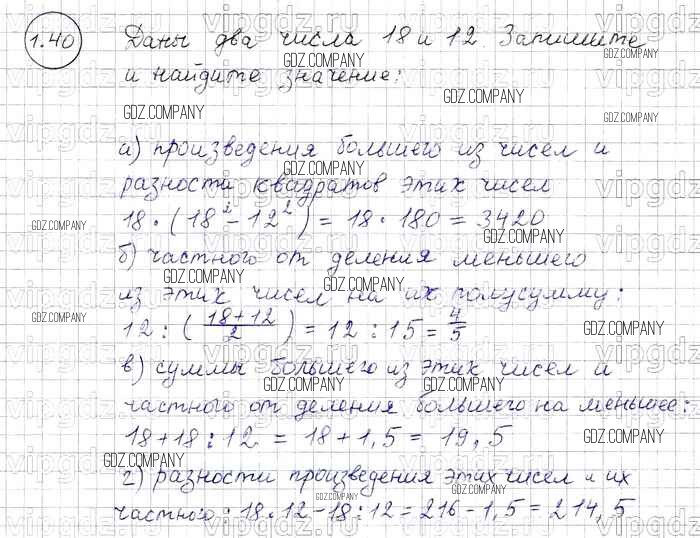 1.40 Даны два числа 18 и 12. Запишите
и найдите значение:
а) произведения большего из чисел и
разности квадратов этих чисел
18 · (18² - 12²) = 18 · 180 = 3420
б) частного от деления меньшего
из этих чисел на их полусумму:
12 : ( (18 + 12)/2 ) = 12 : 15 = 4/5
в) суммы большего из этих чисел и
частного от деления большего на меньшее:
18 + 18 : 12 = 18 + 1,5 = 19,5
г) разности произведения этих чисел и их
частного: 18 · 12 - 18 : 12 = 216 - 1,5 = 214,5
GDZ.COMPANY
vipgdz.ru